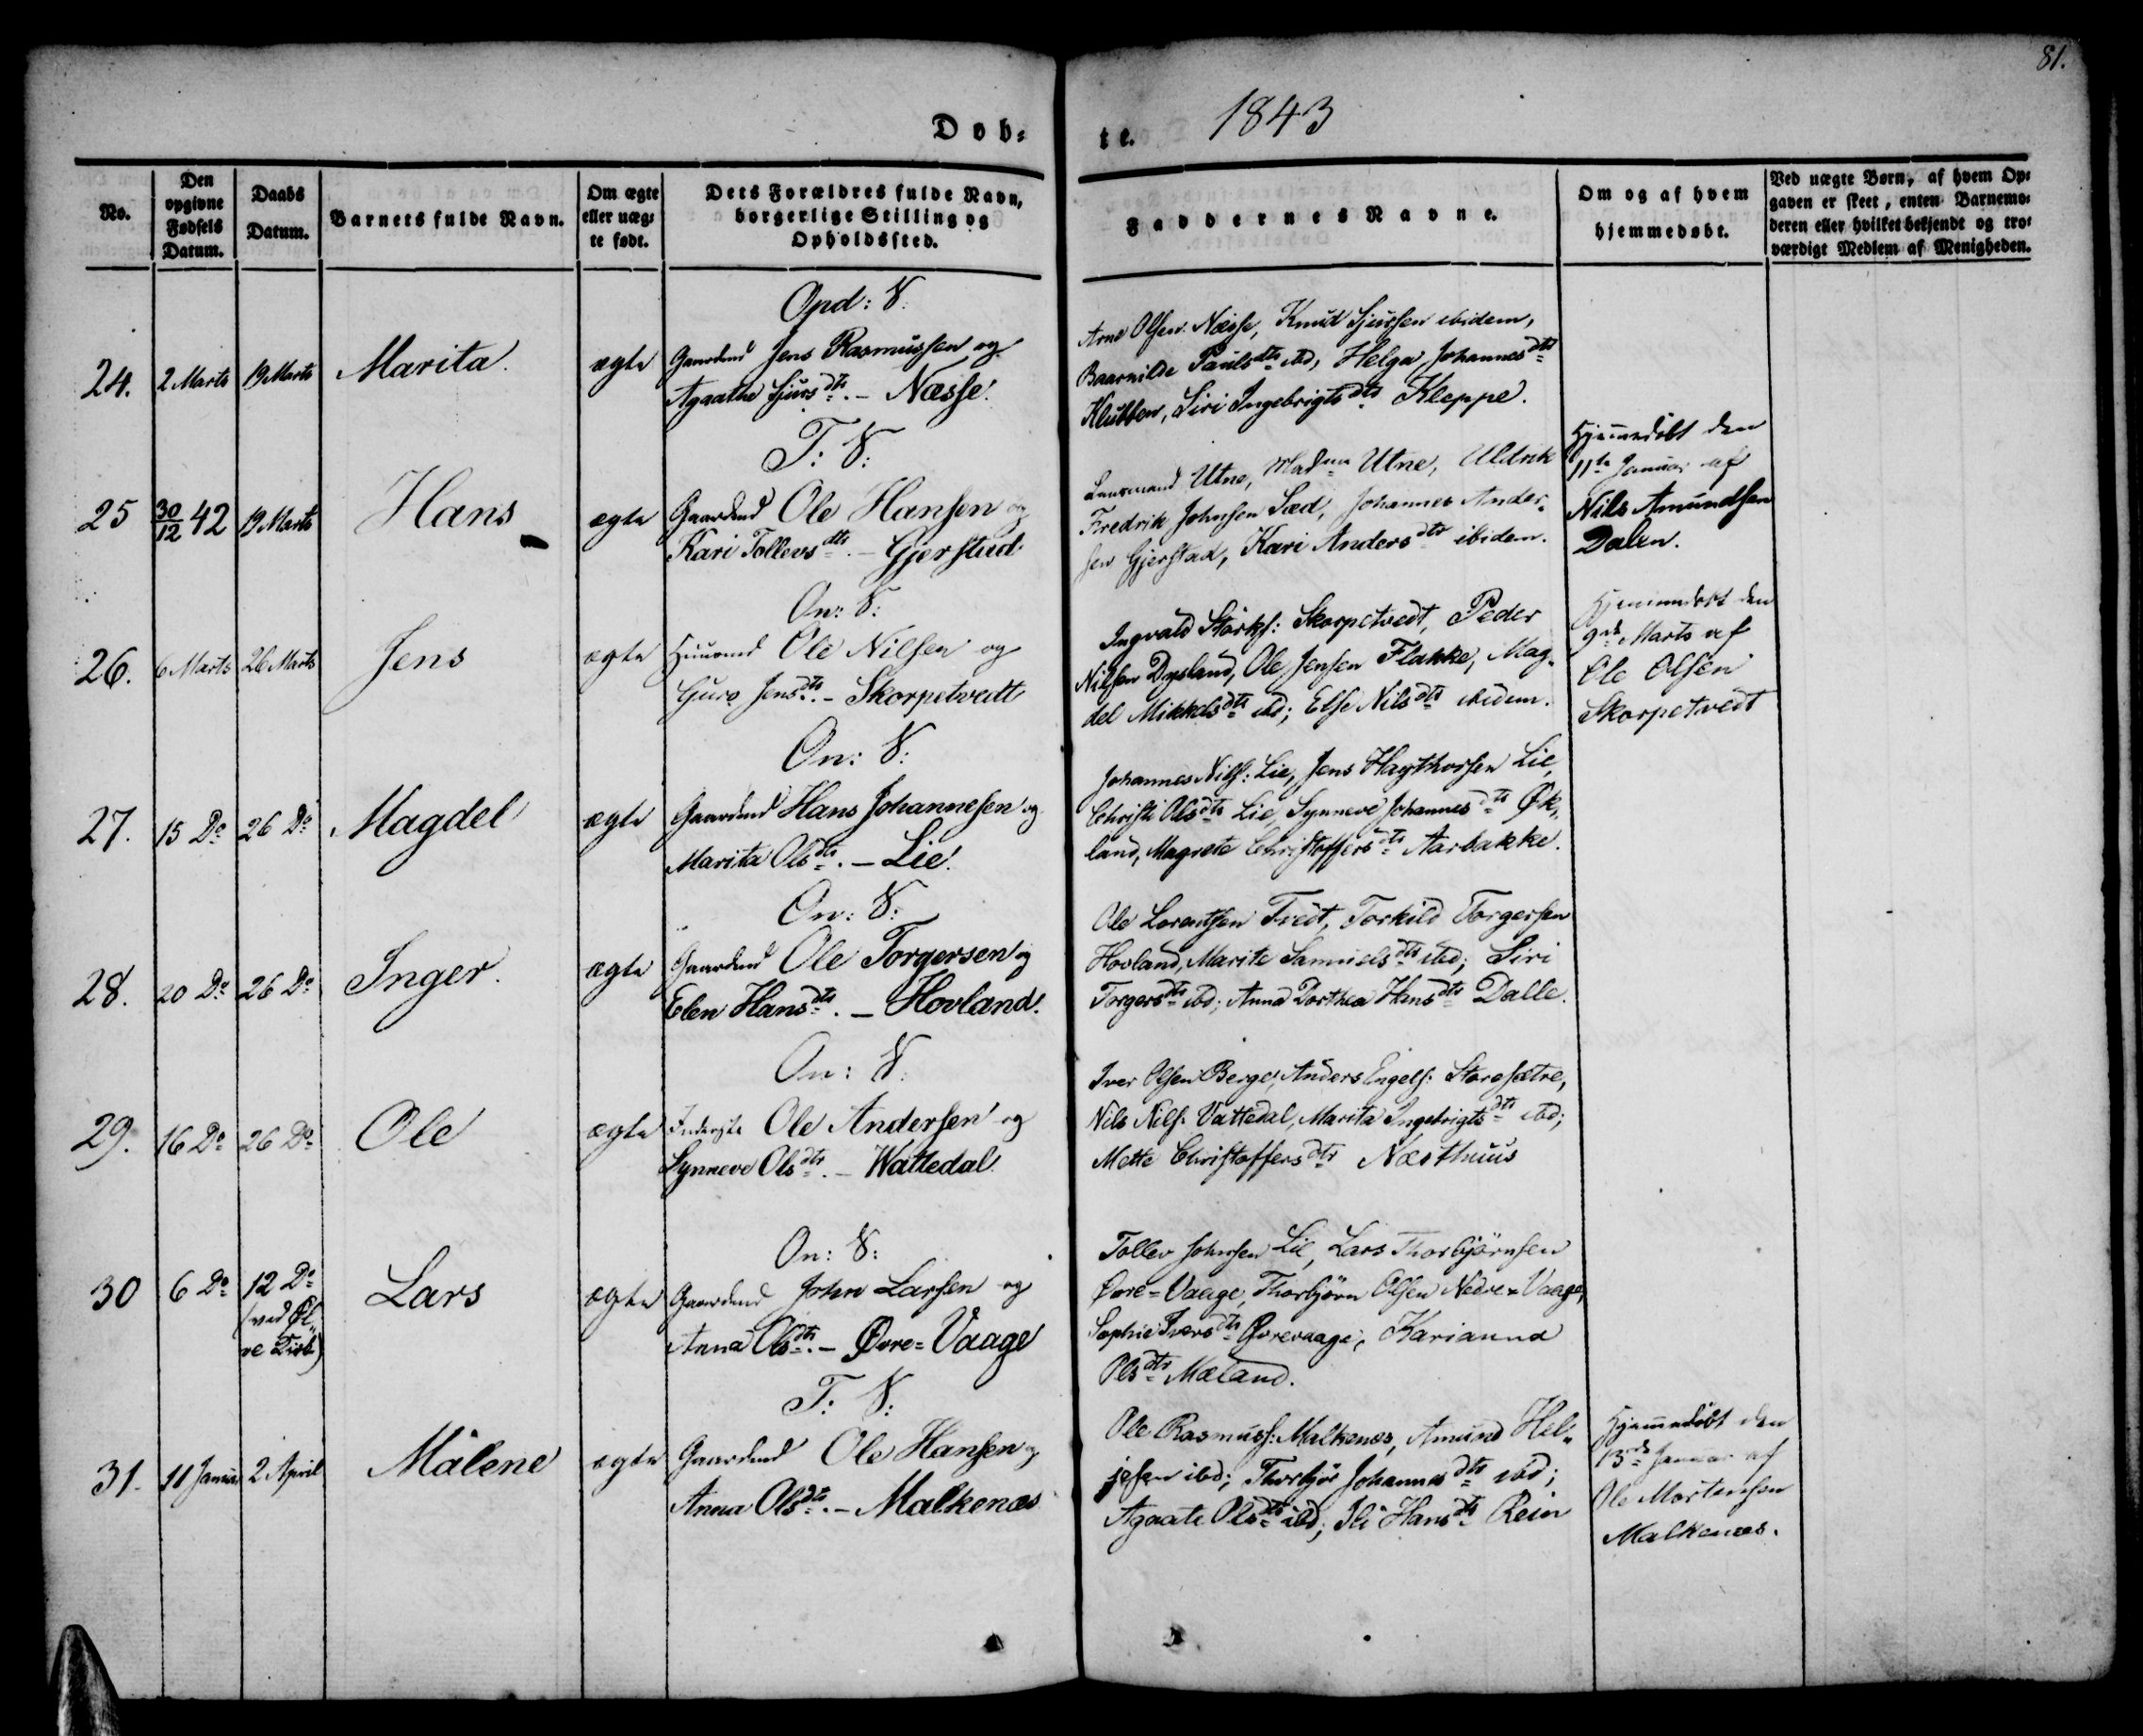 81.
Døb-
te.
1843
No.
Den opgivne Fødsels Datum.
Daabs Datum.
Barnets fulde Navn.
Om ægte eller uægte født.
Dets Forældres fulde Navn, borgerlige Stilling og Opholdssted.
Faddernes Navne.
Om og af hvem hjemmedøbt.
Ved uægte Børn, af hvem Op-
gaven er skeet, enten Barnemo-
deren eller hvilket bekjendt og tro-
værdigt Medlem af Menigheden.
Opd: V:
24. 2 Marts 19 Marts Marita. ægte Gaardmd Jens Rasmussen og
Agaathe Sjursdtr. - Næsse.
Arne Olsen Næsse, Knud Sjursen ibidem,
Baarnilde Paulsdtr ibd, Helga Johannesdtr
Klubben, Siri Ingebrigtsdtr Kleppe.
T: V:
25 30/12 42 19 Marts Hans ægte Gaardmd Ole Hansen og
Kari Tollevsdtr. - Gjerstad.
Lensmand Utne, Madme Utne, Uldrik
Fredrik Johnsen Sæd, Johannes Ander-
sen Gjerstad, Kari Andersdtr ibidem.
Hjemmedøbt den
11te Januar af
Nils Amundsen
Dalen.
On: V:
26. 6 Marts 26 Marts Jens ægte Huusmd Ole Nilsen og
Guro Jensdtr. - Skorpetvedt
Ingvald Størks: Skorpetvedt, Peder
Nilsen Dysland, Ole Jensen Flakke, Mag-
del Mikkelsdtr ibd; Else Nilsdtr ibidem.
Hjemmedøbt den
9de Marts af
Ole Olsen
Skorpetvedt
On: V:
27. 15 Do 26 Do Magdel ægte Gaardmd Hans Johannesen og
Marita Olsdtr. - Lie.
Johannes Nils: Lie, Jens Hagthorsen Lie,
Christi Olsdtr Lie, Synneve Johannesdtr Øk-
land, Magrete Christoffersdtr Aarbakke.
On: V:
28. 20 Do 26 Do Inger. ægte Gaardmd Ole Torgersen og
Elen Hansdtr. - Hovland.
Ole Lorentsen Tvedt, Torkild Torgersen
Hovland, Marite Samuelsdtr ibd; Siri
Torgersdtr ibd; Anna Dorthea Hansdtr Dalle.
On: V:
29. 16 Do 26 Do Ole ægte Inderste Ole Andersen og
Synneve Olsdtr. - Wattedal.
Iver Olsen Berge, Anders Engels: Storesætre,
Nils Nils: Vattedal, Marita Ingebrigtsdtr ibd;
Mette Christoffersdtr Næsthuus
On: V:
30 6 Do 12 Do Lars ægte Gaardmd John Larsen og
(ved Øl-
ve Kirk)
Anna Olsdtr. - Øvre=Vaage
Tollev Johnsen Lie, Lars Thorbjørnsen
Øvre=Vaage, Thorbjørn Olsen Nedre=Vaage,
Sophie Iversdtr Øvrevaage, Karianna
Olsdtr Mæland.
T: V:
31. 11 Januar 2 April Målene ægte Gaardmd Ole Hansen og
Anna Olsdtr. - Malkenæs
Ole Rasmuss: Malkenes, Amund Hel-
jesen ibd; Thorbjør Johannesdtr ibd;
Agaate Olsdtr ibd; Ili Hansdtr Rein
Hjemmedøbt den
13de Januar af
Ole Mortensen
Malkenæs.